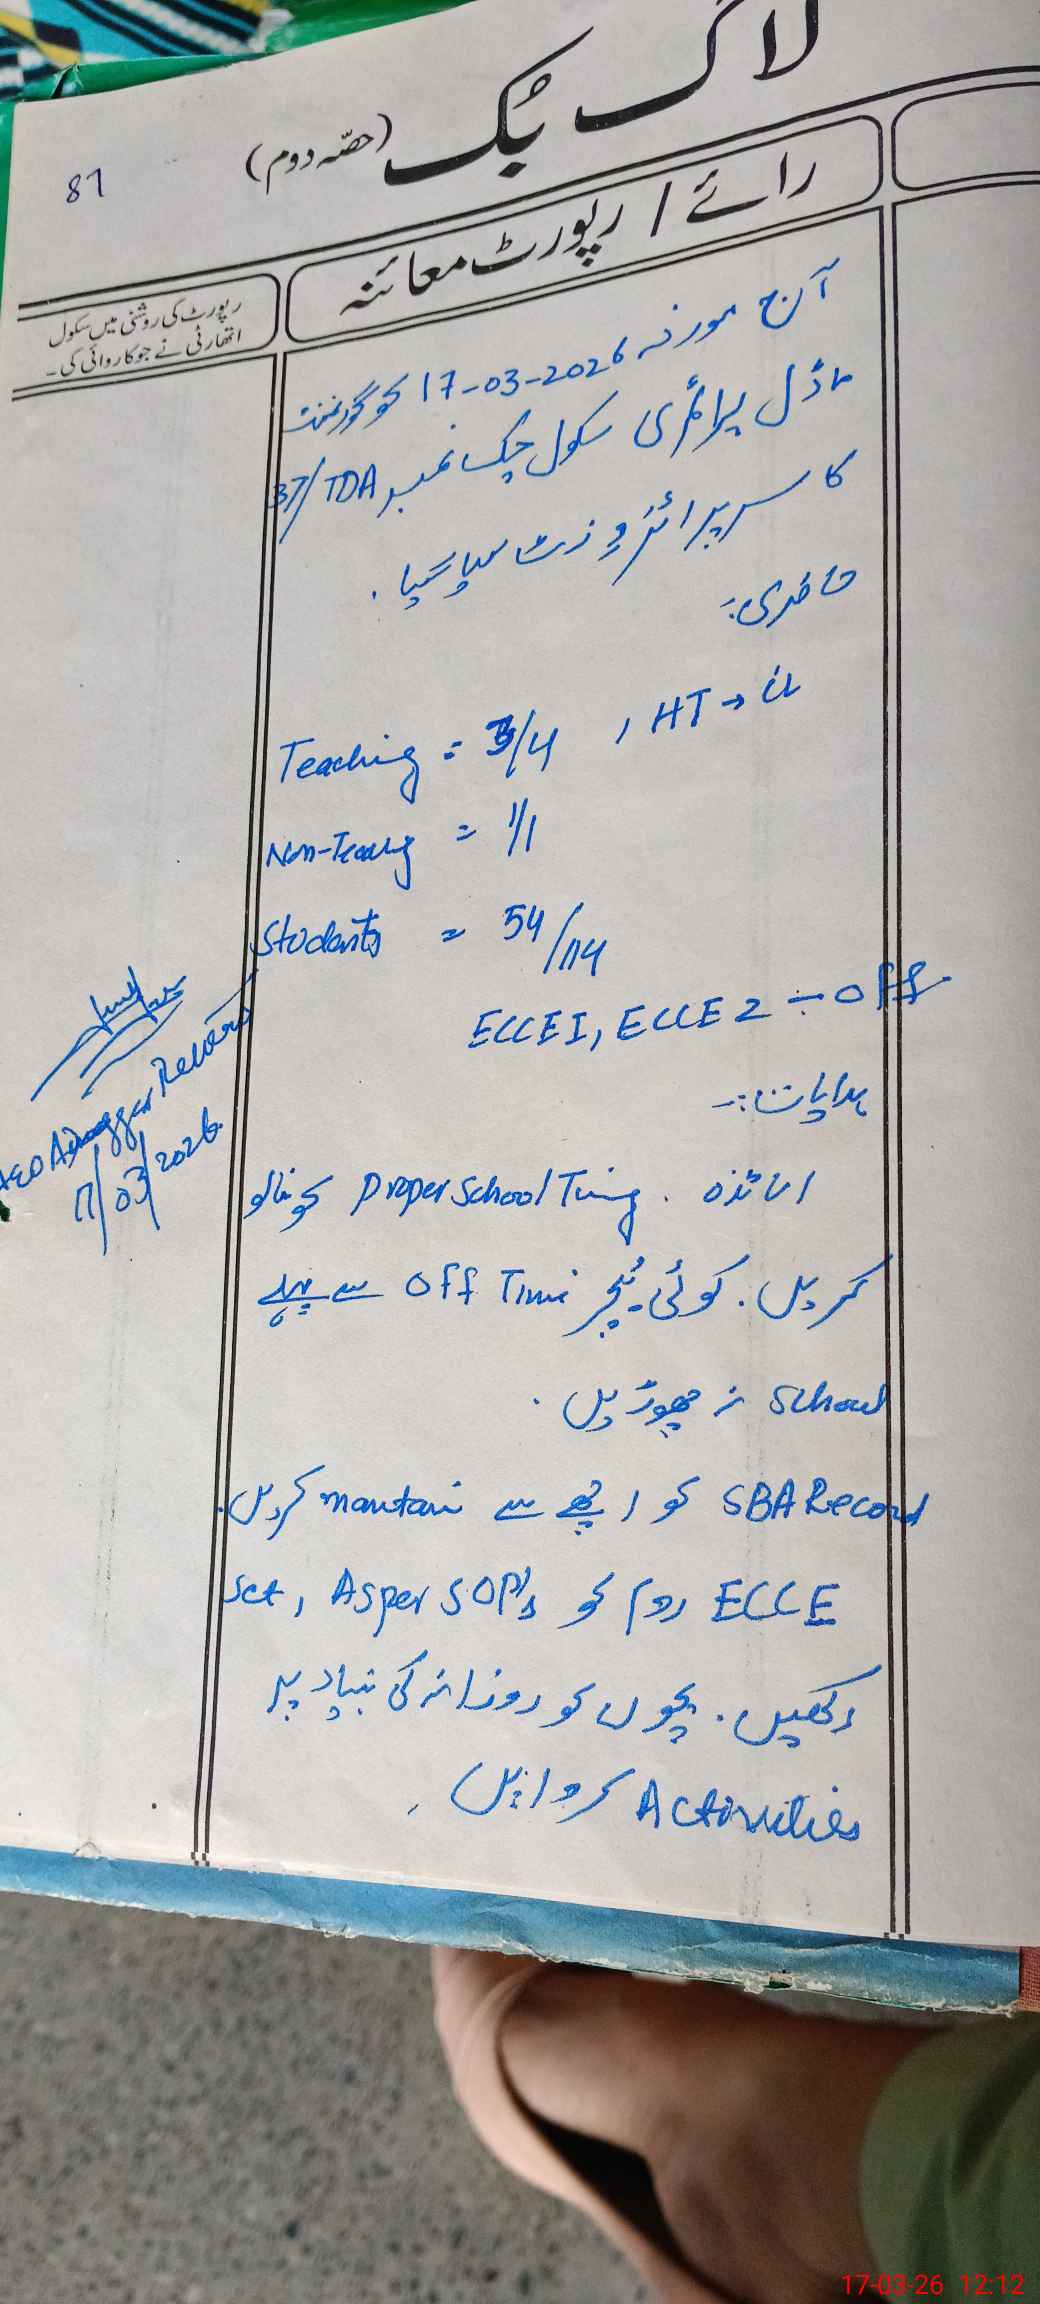 لاگ بُک (حصّہ دوم)
87
رائے / رپورٹ معائنہ
رپورٹ کی روشنی میں سکول
اتھارٹی نے جو کاروائی کی۔
آج مورخہ 17-03-2026 کو گورنمنٹ
ماڈل پرائمری سکول چک نمبر 37/TDA
کا سرپرائز وزٹ کیا گیا۔
حاضری:-
Teaching = 3/4 , HT →
Non-Teaching = 1/1
Students = 54/114
ECCE I, ECCE 2 ÷ Off
ہدایات:-
اساتذہ Proper School Timing کو فالو
کریں۔ کوئی ٹیچر Off Time سے پہلے
School نہ چھوڑیں۔
SBA Record کو اچھے سے maintain کریں۔
ECCE روم کو As per SOP's, set
رکھیں۔ بچوں کو روزانہ کی بنیاد پر
Activities کروائیں۔
AEO
17/03/2026
17-03-26 12:12